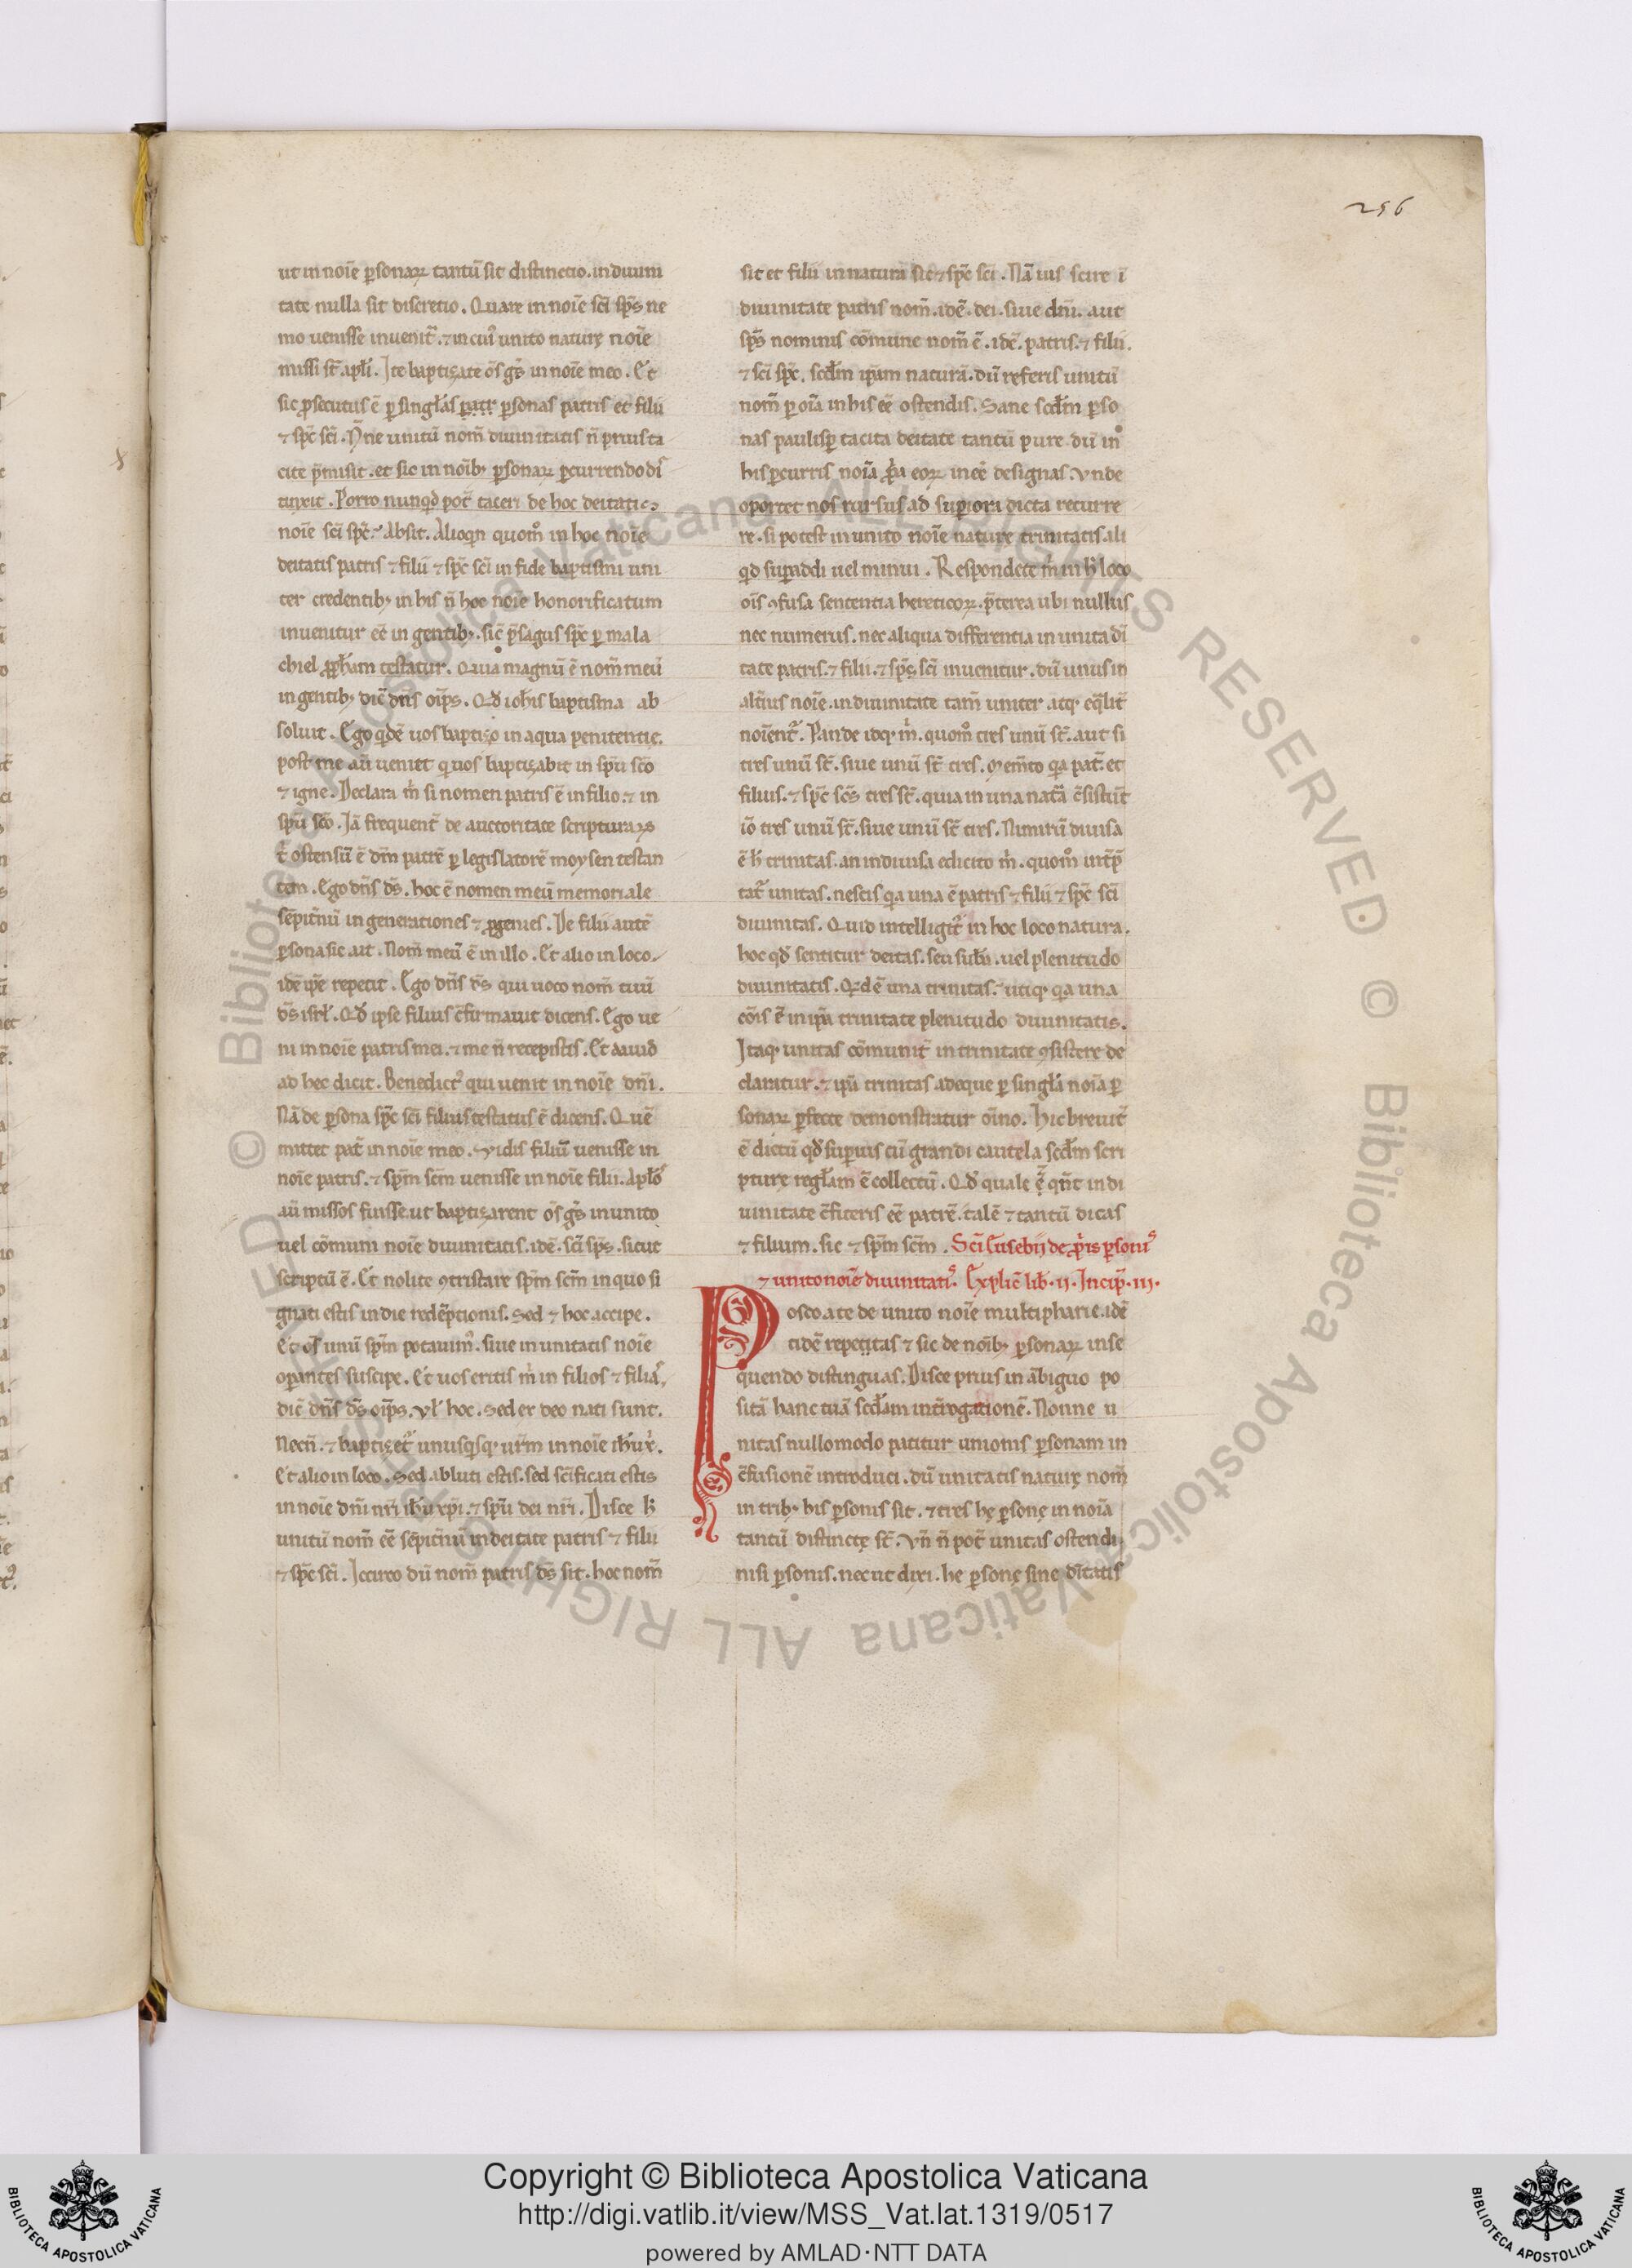 256
ut in noīe ꝑsonaꝝ tantū sit distinctio. in diuini
tate nulla sit discretio. Quare in noīe scī sp̄s ne
mo uenisse inuenit̄. ⁊ in cuiꝰ unito naturę noīe
missi st̄ apłi. Ite baptizate ōs gͣs in noīe meo. Et
sic ꝓsecutus ē ꝑ singłas patr ꝑsonas patris et filii
⁊ sp̄c scī. Nne unitū nom̄ diuinitatis n̄ prius ta
cite p̄misit. et sic in noīb; ꝑsonaꝝ ꝑcurrendo di
tinxit. Porro nunqd̄ pot̄ taceri de hoc deitatis
noīe scī sp̄c. Absit. Alioqn quom̊ in hoc noīe
deitatis patris ⁊ filii ⁊ sp̄c scī in fide baptismi uni
ter credentib; in his n̄ hoc noīe honorificatum
inuenitur eē in gentib;. sic̄ p̄sagus sp̄c ꝑ mala
chiel ꝓph̄am testatur. Quia magnū ē nom̄ meū
in gentib; dic̄ dn̄s oīps. Qd̄ ioh̄is baptisma ab
soluit. Ego qdē uos baptizo in aqua penitentię.
post me aū ueniet qui uos baptizabit in sp̄u sc̄o
⁊ igne. Declara m̄ si nomen patris ē in filio. ⁊ in
sp̄u sc̄o. Iā frequent̄ de auctoritate scripturaꝝ
t̄ ostensū ē dm̄ patrē ꝑ legislatorē moysen testan
tem. Ego dn̄s ds̄. hoc ē nomen meū memoriale
sēpitnū in generationes ⁊ ꝓgenies. De filii autē
ꝑsona sic ait. Nom̄ meū ē in illo. Et alio in loco
idē ip̄e repetit. Ego dn̄s ds̄ qui uoco nom̄ tuū
ds̄ isrł. Qd̄ ipse filius c̄firmauit dicens. Ego ue
ni in noīe patris mei. ⁊ me n̄ recepistis. Et dauid
ad hec dicit. Benedictꝰ qui uenit in noīe dn̄i.
Nā de ꝑsona sp̄c scī filius testatus ē dicens. Quē
mittet pat̄ in noīe meo. Vidis filiū uenisse in
noīe patris. ⁊ sp̄m sc̄m uenisse in noīe filii. Apłos
aū missos fuisse. ut baptizarent ōs gͣs in unito
uel cōmuni noīe diuinitatis. idē. scī sp̄s. sicut
scriptū ē. Et nolite ꝯtristare sp̄m sc̄m in quo si
gnati estis in die redēptionis. Sed ⁊ hoc accipe.
Et oēs unū sp̄m potauimꝰ. siue in unitatis noīe
oꝑantes suscipe. Et uos eritis m̄ in filios ⁊ filias,
dic̄ dn̄s ds̄ oīps. Vł hoc. sed ex deo nati sunt.
Necn̄. ⁊ baptizet̄ unusqsq; ur̄m in noīe ih̄u xp̄i.
Et alio in loco. Sed abluti estis. sed sc̄ificati estis
in noīe dn̄i nr̄i ih̄u xp̄i. ⁊ sp̄u dei nr̄i. Disce h̄
unitū nom̄ eē sēpitnū in deitate patris ⁊ filii
⁊ sp̄c scī. Iccirco dū nom̄ patris ds̄ sit. hoc nom̄
sit et filii in natura sic ⁊ sp̄c scī. Nā uis scire ī
diuinitate patris nom̄. idē. dei. siue dn̄i. aut
sp̄s nominis cōmune nom̄ ē. idē. patris. ⁊ filii.
⁊ scī sp̄c. scd̄m ip̄am naturā. dū referis unitū
nom̄ ꝑ oīa in his eē ostendis. Sane scd̄m ꝑso
nas paulisꝑ tacita deitate tantū pure. dū in
his ꝑcurris noīa ꝓpͥa eoꝝ in eē designas. Vnde
oportet nos rursus ad suꝑiora dicta recurre
re. si potest in unito noīe naturę trinitatis. ali
qd suꝑaddi uel minui. Respondete m̄ in h̄ loco
oīs ꝯfusa sententia hereticoꝝ. p̄terea ubi nullus
nec numerus. nec aliqua differentia in unita di
tate patris. ⁊ filii. ⁊ sp̄s scī inuenitur. dū unus in
altīus noīe. in diuinitate tam̄ uniter atq; eq̄lit̄
noīent̄. Pande itaq; m̄. quom̊ tres unū st̄. aut si
tres unū st̄. siue unū st̄ tres. Mem̄to qͣ pat̄. et
filius. ⁊ sp̄c sc̄s tres st̄. quia in una nat̄a c̄sistūt
iō tres unū st̄. siue unū st̄ tres. Nimirū diuisa
ē h̄ trinitas. an indiuisa edicito m̄. quom̊ int̄p̄
tat̄ unitas. nescis qͣ una ē patris ⁊ filii ⁊ sp̄c scī
diuinitas. Quid intelligit̄ in hoc loco natura.
hoc qd̄ sentitur deitas. seu sub̄a. uel plenitudo
diuinitatis. Qd ē una trinitas. utiq; qͣ una
cōis ē in ip̄a trinitate plenitudo diuinitatis.
Itaq; unitas cōmunit̄ in trinitate ꝯsistere de
claratur. ⁊ ip̄a trinitas adeque ꝑ singła noīa ꝑ
sonaꝝ ꝑfecte demonstratur oīno. Hic breuit̄
ē dictū qd̄ suꝑius cū grandi cautela scd̄m scri
pturę regłam ē collectū. Qd̄ quale ⁊ qn̄t in di
uinitate c̄fiteris eē patrē. talē ⁊ tantū dicas
⁊ filium. sic ⁊ sp̄m sc̄m. Scī Eusebij de ꝓpͥis ꝑsonisꝰ
⁊ unito noīe diuinitatiꝰ. Explic̄ lib̄. ij. Incip̄. iii.
Posco a te de unito noīe multipharie. idē
tidē repetitas ⁊ sic de noīb; ꝑsonaꝝ inse
quendo distinguas. Disce prius in ābiguo po
sitā hanc tuā scd̄am int̄rogationē. Nonne u
nitas nullomodo patitur unionis ꝑsonam in
c̄fusionē introduci. dū unitatis naturę nom̄
in trib; his ꝑsonis sit. ⁊ tres hę ꝑsonę in noīa
tantū distinctę st̄. Vn̄ n̄ pot̄ unitas ostendi.
nisi ꝑsonis. nec ut dixi. he ꝑsonę sine dītatis
© Biblioteca Apostolica Vaticana ALL RIGHTS RESERVED © Biblioteca Apostolica Vaticana ALL RIGHTS RESERVED
Copyright © Biblioteca Apostolica Vaticana
http://digi.vatlib.it/view/MSS_Vat.lat.1319/0517
powered by AMLAD·NTT DATA
BIBLIOTECA APOSTOLICA VATICANA
BIBLIOTECA APOSTOLICA VATICANA